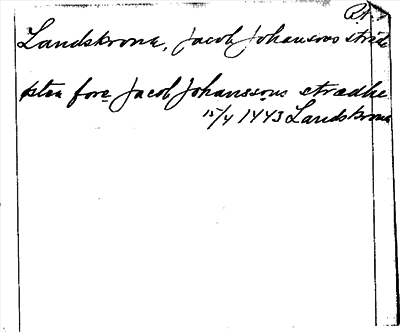 Bt.
Landskrona, Jacob Johansons stræde
sten fore Jacob Johanssons strædhe
15/4 1443 Landskrona